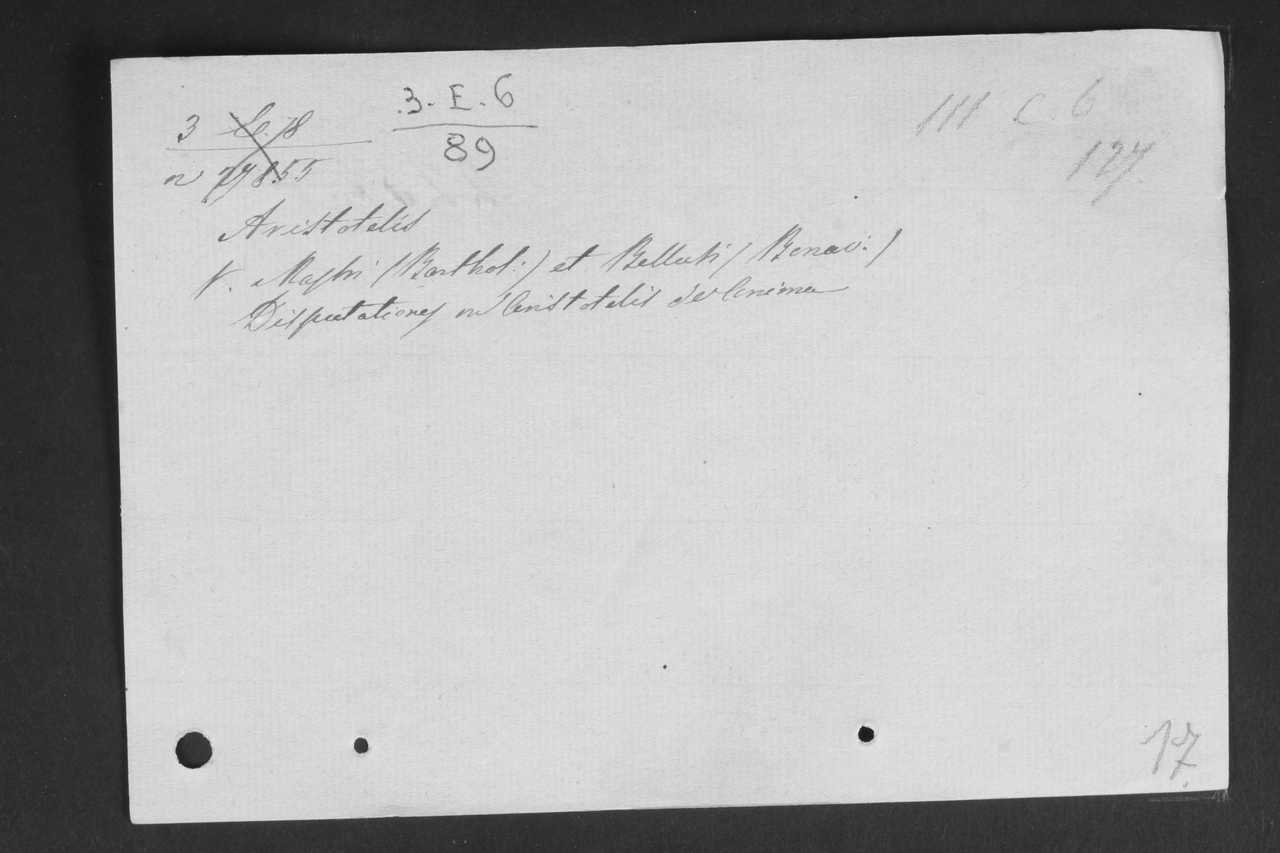 3. E. 6
89
3 C. 18
n 77855
III C. 6
127
Aristotelis
V. Mastri (Barthol:) et Belluti (Bonav:)
Disputationes in Aristotelis de Anima
17.